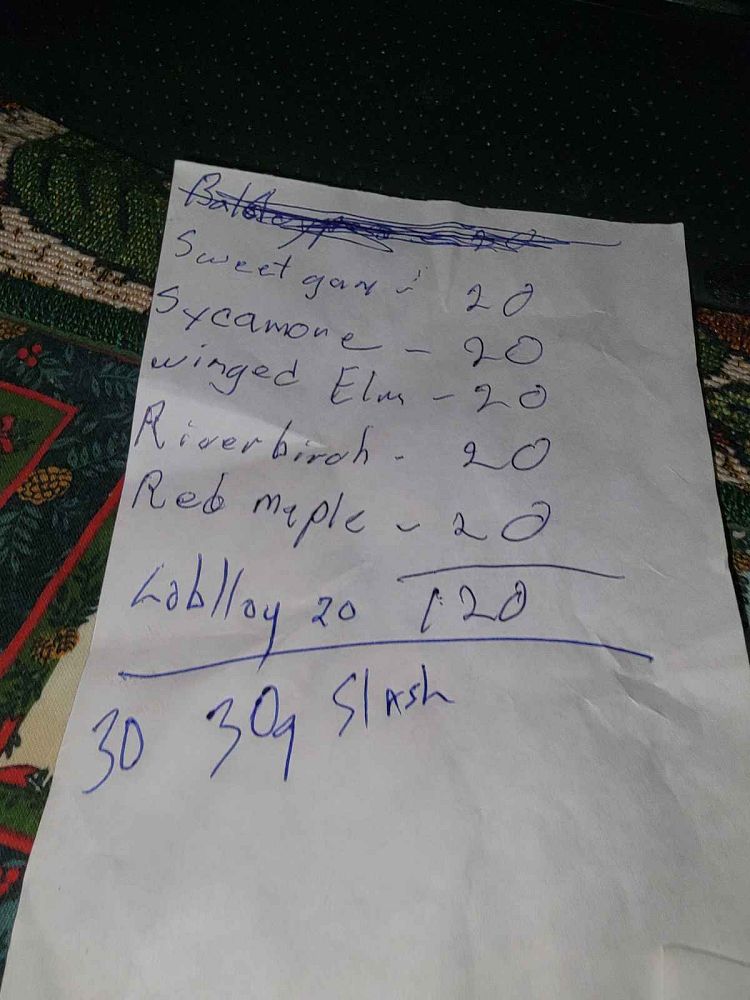 Sweetgam - 20
Sycamore - 20
winged Elm - 20
Riverbirch - 20
Red maple - 20
Loblloy 20 120
30 30g Slash